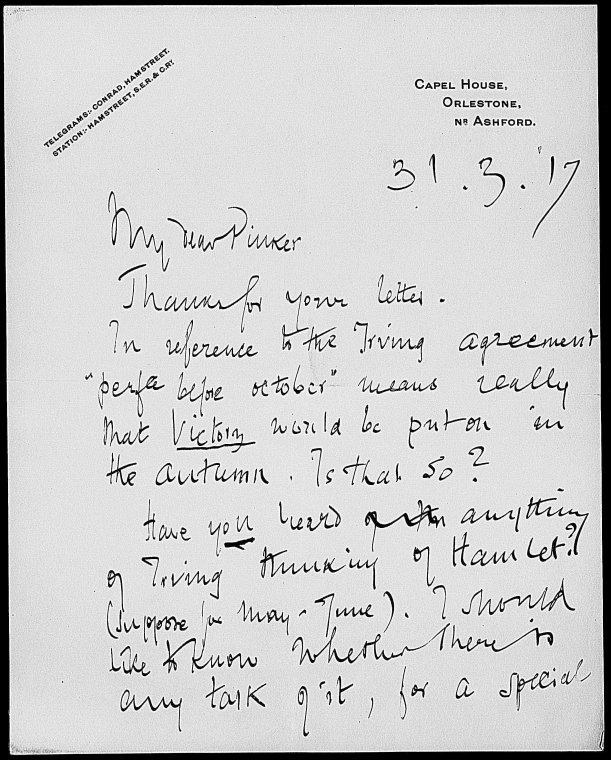 TELEGRAMS:- CONRAD, HAMSTREET.
STATION:- HAMSTREET, S.E.R. & C.RY.
CAPEL HOUSE,
ORLESTONE,
NR ASHFORD.
31.3.'17
My dear Pinker
Thanks for your letter.
In reference to the Irving agreement
"perfce before october" means really
that Victory would be put on in
the autumn. Is that so?
Have you heard anything
of Irving thinking of Hamlet?
(suppose for May-June). I should
like to know whether there is
any talk of it, for a special